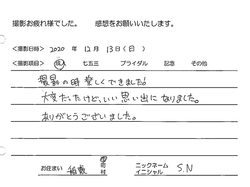 撮影お疲れ様でした。 感想をお願いいたします。
<撮影日時> 2020 年 12 月 13 日 (日)
<撮影項目> 成人 七五三 ブライダル 記念 その他
撮影の時楽しくできました!
大変だったけど、いい思い出になりました。
ありがとうございました。
お住まい 稲敷 市 町 村 ニックネーム イニシャル S.N